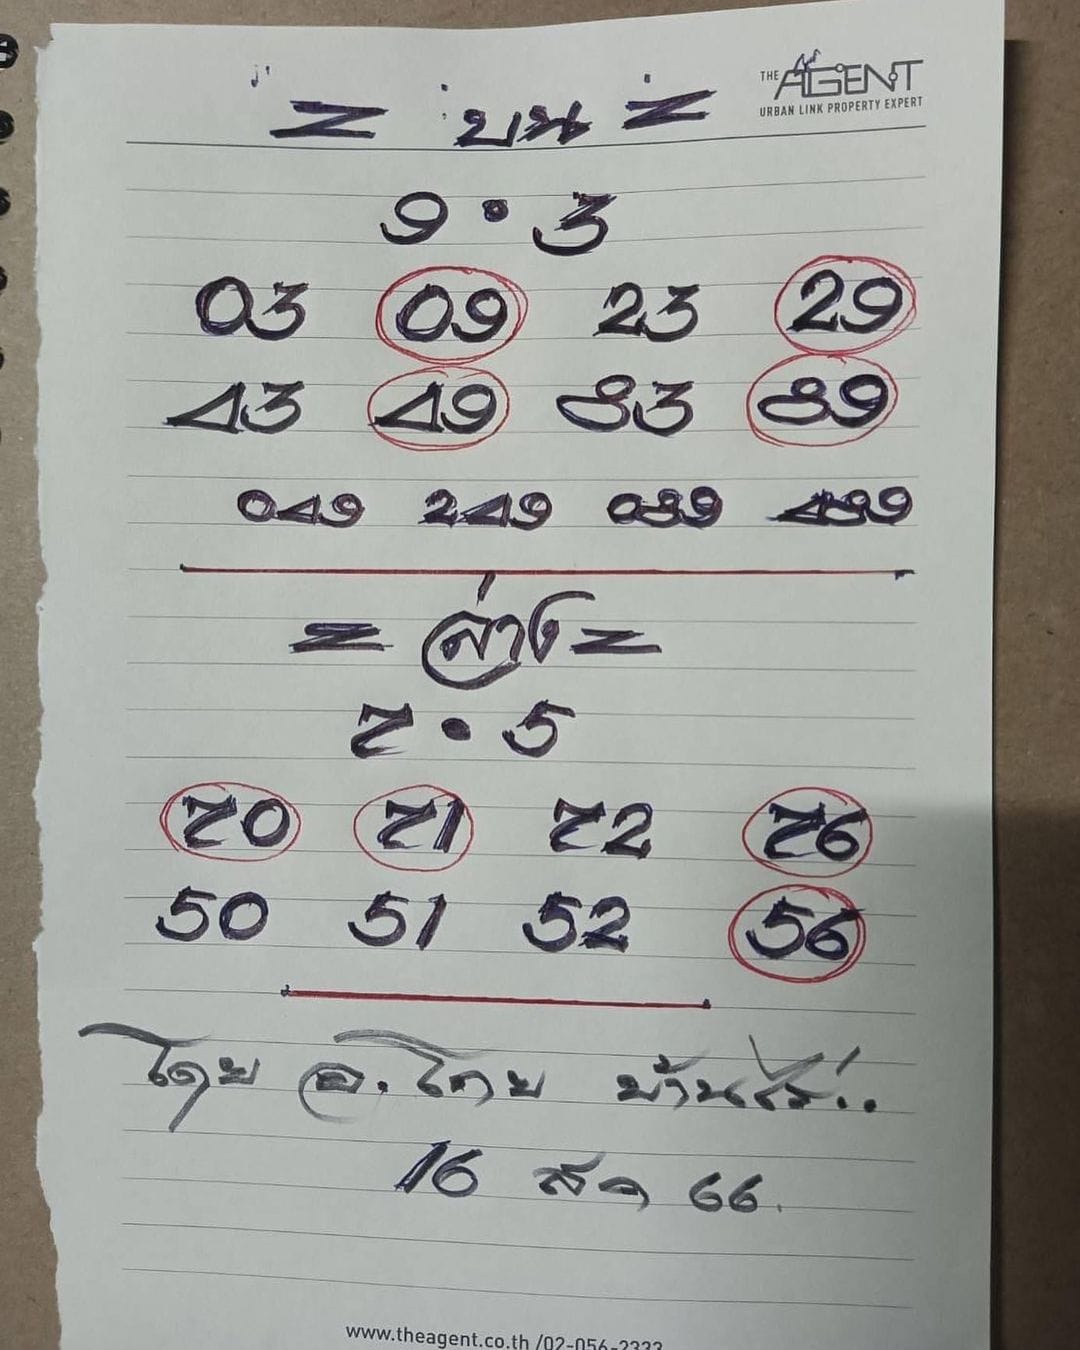 THE AGENT
URBAN LINK PROPERTY EXPERT
= บน =
9 • 3
03 09 23 29
43 49 83 89
049 249 089 489
= ล่าง =
7 • 5
70 71 72 76
50 51 52 56
โดย อ. โดย บ้านไร่..
16 สค 66.
www.theagent.co.th /02-056-2333